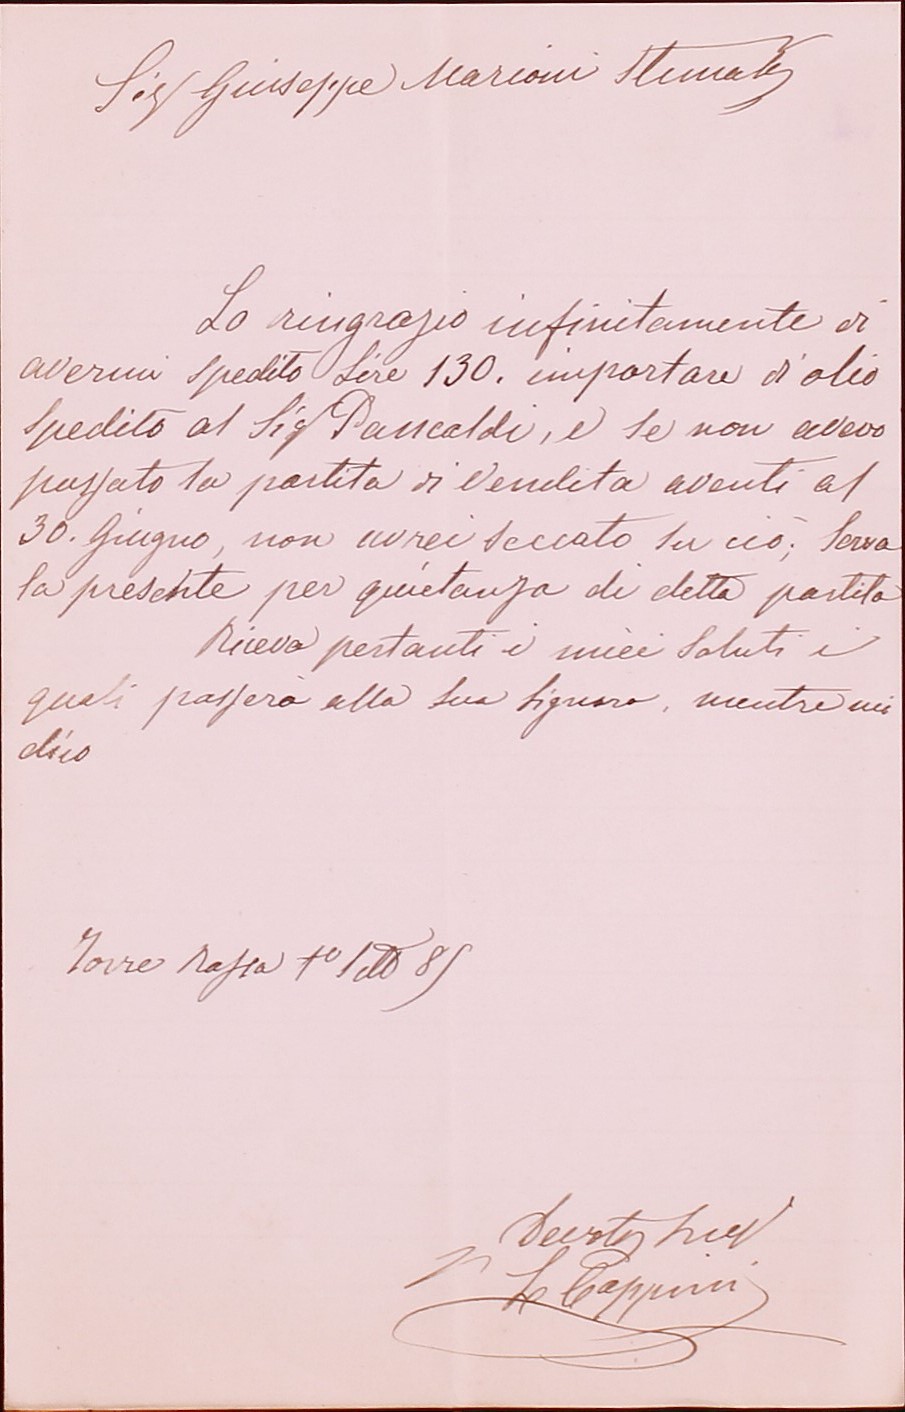 Sig Giuseppe Marioni Stimat
Lo ringrazio infinitamente di
avermi spedito Lire 130. importare di olio
spedito al Sig Pancaldi, e se non avevo
passato la partita di Vendita aventi al
30. Giugno, non avrei seccato su ciò; Serva
la presente per quietanza di detta partita
Riceva pertanti i miei saluti i
quali passerà alla sua Signora, mentre mi
dico
Torre Rossa 85
Devot
L Cappini